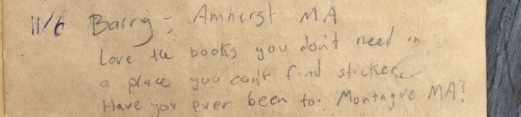 11/6 Barry - Amherst MA
Love the books you don't need in
a place you can't find stickers
Have you ever been to Montague MA?